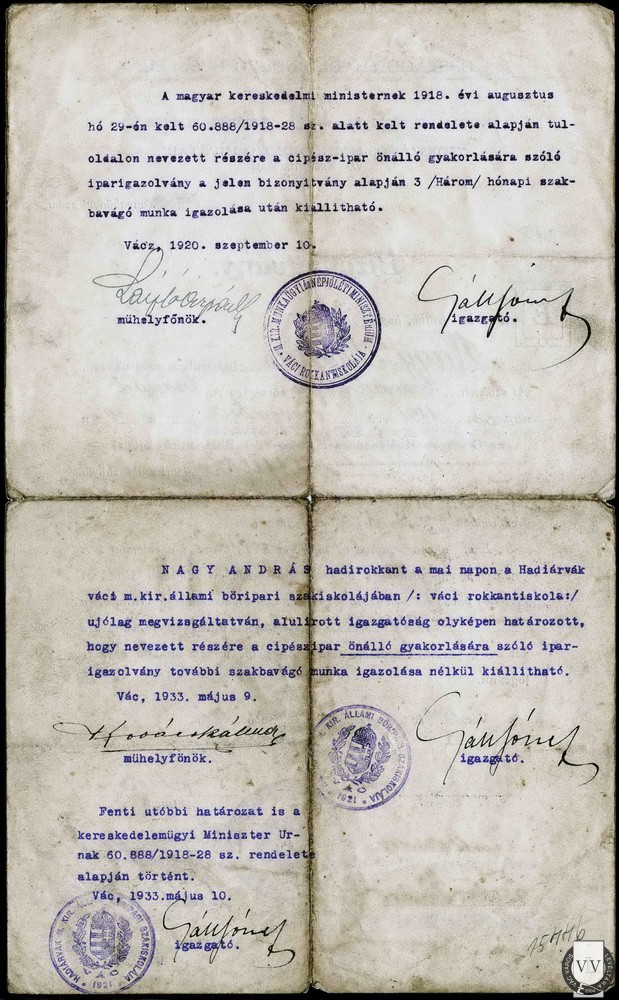 A magyar kereskedelmi ministernek 1918. évi augusztus
hó 29-én kelt 60.888/1918-28 sz. alatt kelt rendelete alapján tul-
oldalon nevezett részére a cipész-ipar önálló gyakorlására szóló
iparigazolvány a jelen bizonyitvány alapján 3 /Három/ hónapi szak-
bavágó munka igazolása után kiállitható.
Vácz, 1920. szeptember 10.
műhelyfőnök.
M. KIR. MUNKAÜGYI ÉS NÉPJÓLÉTI MINISZTÉRIUM
VÁCI ROKKANTISKOLÁJA
Gáll József
igazgató.
NAGY ANDRÁS hadirokkant a mai napon a Hadiárvák
váci m.kir.állami bőripari szakiskolájában /: váci rokkantiskola:/
ujólag megvizsgáltatván, alulirott igazgatóság olyképen határozott,
hogy nevezett részére a cipészipar önálló gyakorlására szóló ipar-
igazolvány további szakbavágó munka igazolása nélkül kiállitható.
Vác, 1933. május 9.
Kovács Kálmán
műhelyfőnök.
KIR. ÁLLAMI BŐRIPARI SZAKISKOLÁJA
VÁC
1921
Gáll József
igazgató.
Fenti utóbbi határozat is a
kereskedelemügyi Miniszter Ur-
nak 60.888/1918-28 sz. rendelete
alapján történt.
Vác, 1933.május 10.
HADIÁRVÁK M. KIR. ÁLLAMI BŐRIPARI SZAKISKOLÁJA
VÁC
1921
Gáll József
igazgató.
VÁC VÁROS LEVÉLTÁRA
VVL